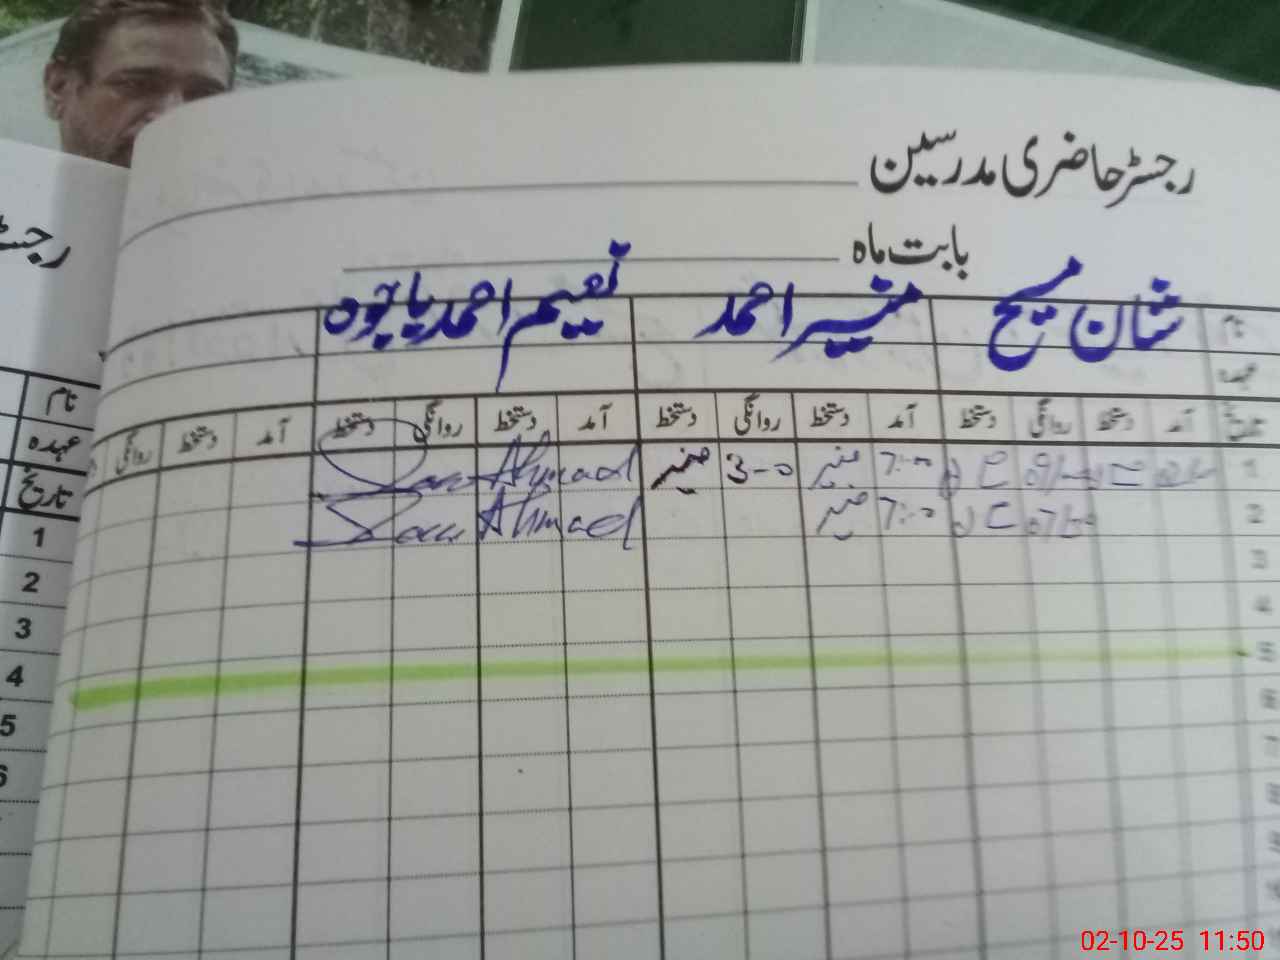 رجسٹر حاضری مدرسین
بابت ماہ
نام شان مسیح منیر احمد نعیم احمد باجوہ
عہدہ
تاریخ آمد دستخط روانگی دستخط آمد دستخط روانگی دستخط آمد دستخط روانگی دستخط آمد دستخط روانگی
1 7:00 منیر 3-0 منیر Ahmad
2 7:0 منیر Ahmad
3
4
5
6
7
8
9
رجسٹ
نام
عہدہ
تاریخ
1
2
3
4
5
6
02-10-25 11:50